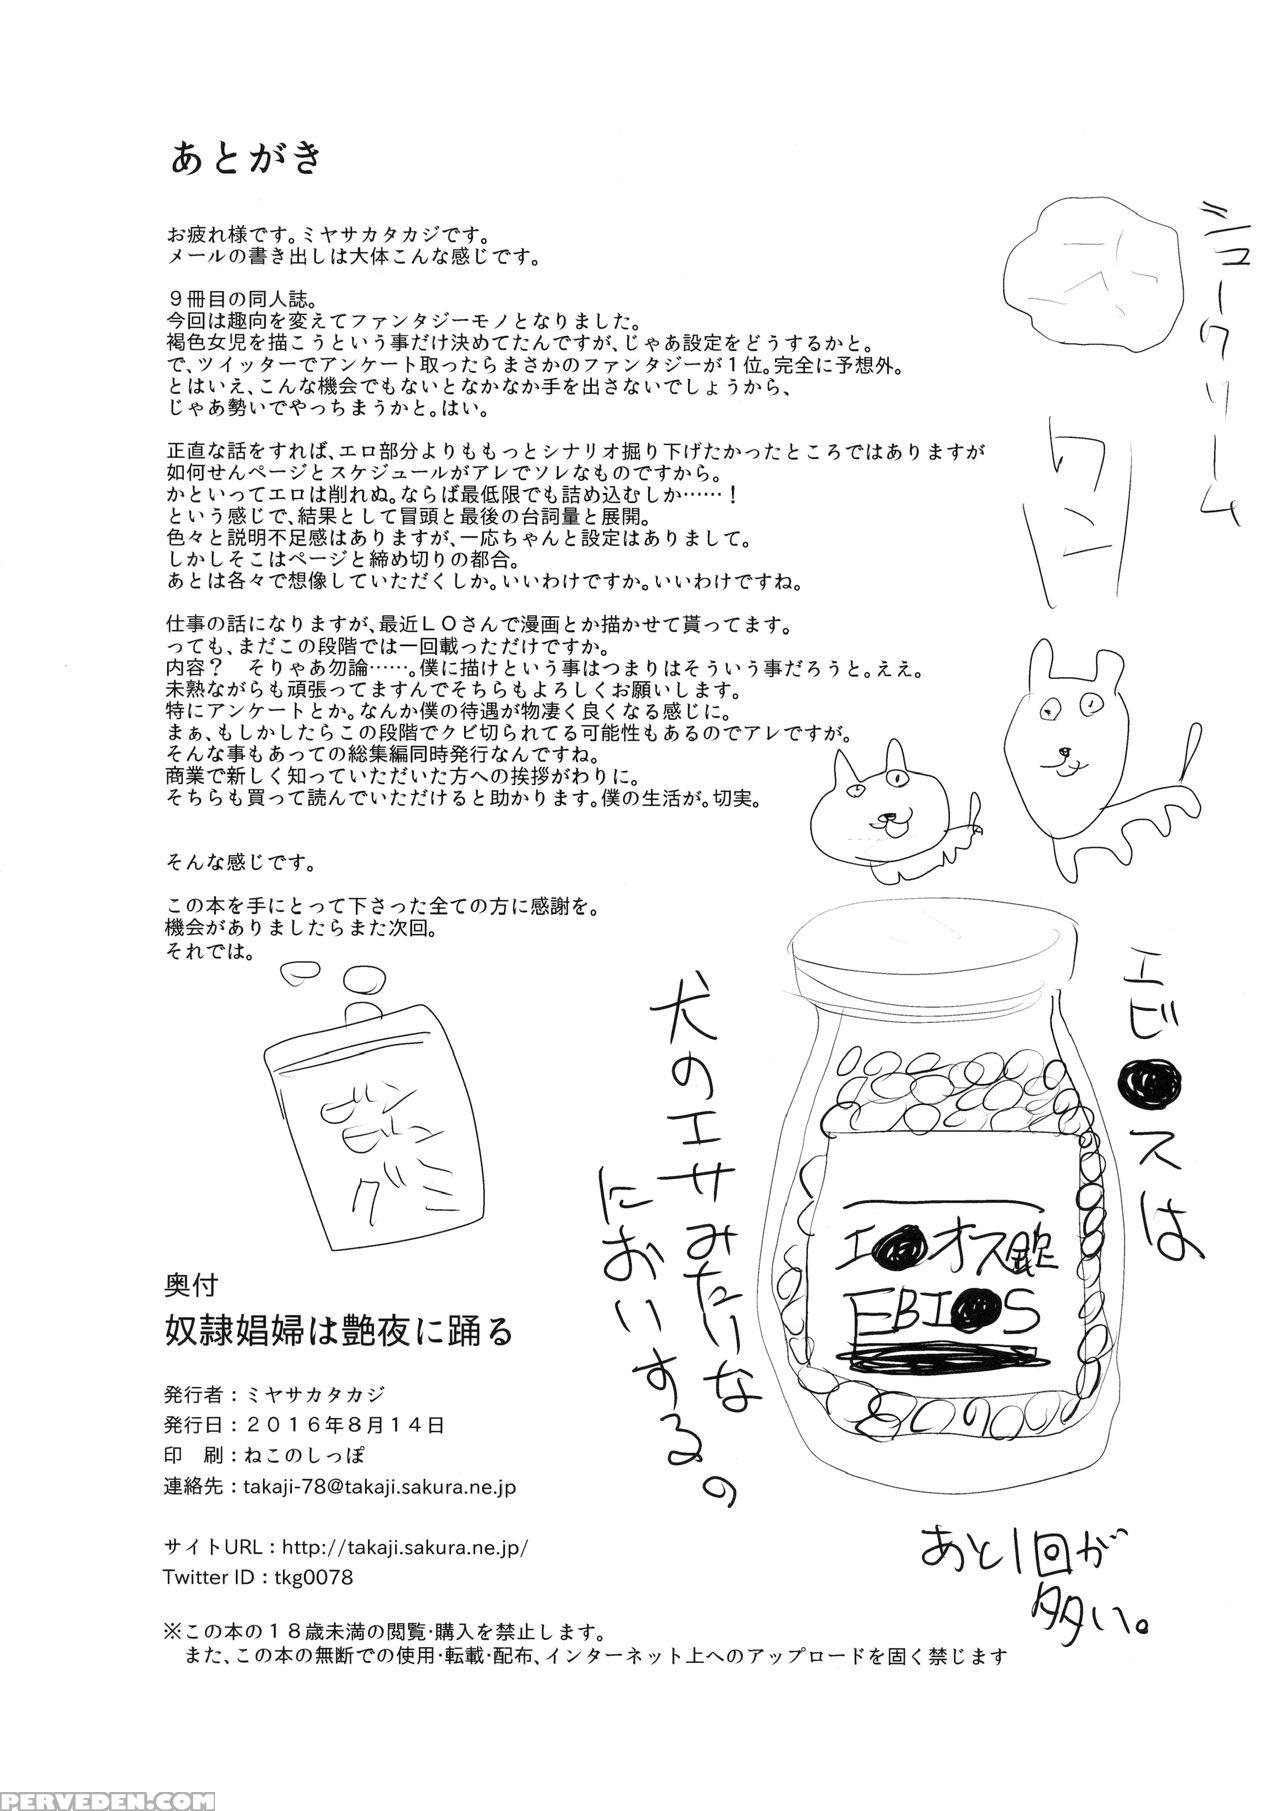 あとがき
お疲れ様です。ミヤサカタカジです。
メールの書き出しは大体こんな感じです。
９冊目の同人誌。
今回は趣向を変えてファンタジーモノとなりました。
褐色女児を描こうという事だけ決めてたんですが、じゃあ設定をどうするかと。
で、ツイッターでアンケート取ったらまさかのファンタジーが１位。完全に予想外。
とはいえ、こんな機会でもないとなかなか手を出さないでしょうから、
じゃあ勢いでやっちまうかと。はい。
正直な話をすれば、エロ部分よりももっとシナリオ掘り下げたかったところではありますが
如何せんページとスケジュールがアレでソレなものですから。
かといってエロは削れぬ。ならば最低限でも詰め込むしか……！
という感じで、結果として冒頭と最後の台詞量と展開。
色々と説明不足感はありますが、一応ちゃんと設定はありまして。
しかしそこはページと締め切りの都合。
あとは各々で想像していただくしか。いいわけですか。いいわけですね。
仕事の話になりますが、最近ＬＯさんで漫画とか描かせて貰ってます。
っても、まだこの段階では一回載っただけですか。
内容？　そりゃあ勿論……。僕に描けという事はつまりはそういう事だろうと。ええ。
未熟ながらも頑張ってますんでそちらもよろしくお願いします。
特にアンケートとか。なんか僕の待遇が物凄く良くなる感じに。
まぁ、もしかしたらこの段階でクビ切られてる可能性もあるのでアレですが。
そんな事もあっての総集編同時発行なんですね。
商業で新しく知っていただいた方への挨拶がわりに。
そちらも買って読んでいただけると助かります。僕の生活が。切実。
そんな感じです。
この本を手にとって下さった全ての方に感謝を。
機会がありましたらまた次回。
それでは。
シュークリーム
ワン
エビ●スは
犬のエサみたいな
においするの
エ●オス錠
EBI●S
あと1回が
多い。
グミ
奥付
奴隷娼婦は艶夜に踊る
発行者：ミヤサカタカジ
発行日：２０１６年８月１４日
印　刷：ねこのしっぽ
連絡先：takaji-78@takaji.sakura.ne.jp
サイトURL：http://takaji.sakura.ne.jp/
Twitter ID：tkg0078
※この本の１８歳未満の閲覧・購入を禁止します。
また、この本の無断での使用・転載・配布、インターネット上へのアップロードを固く禁じます
PERVEDEN.COM